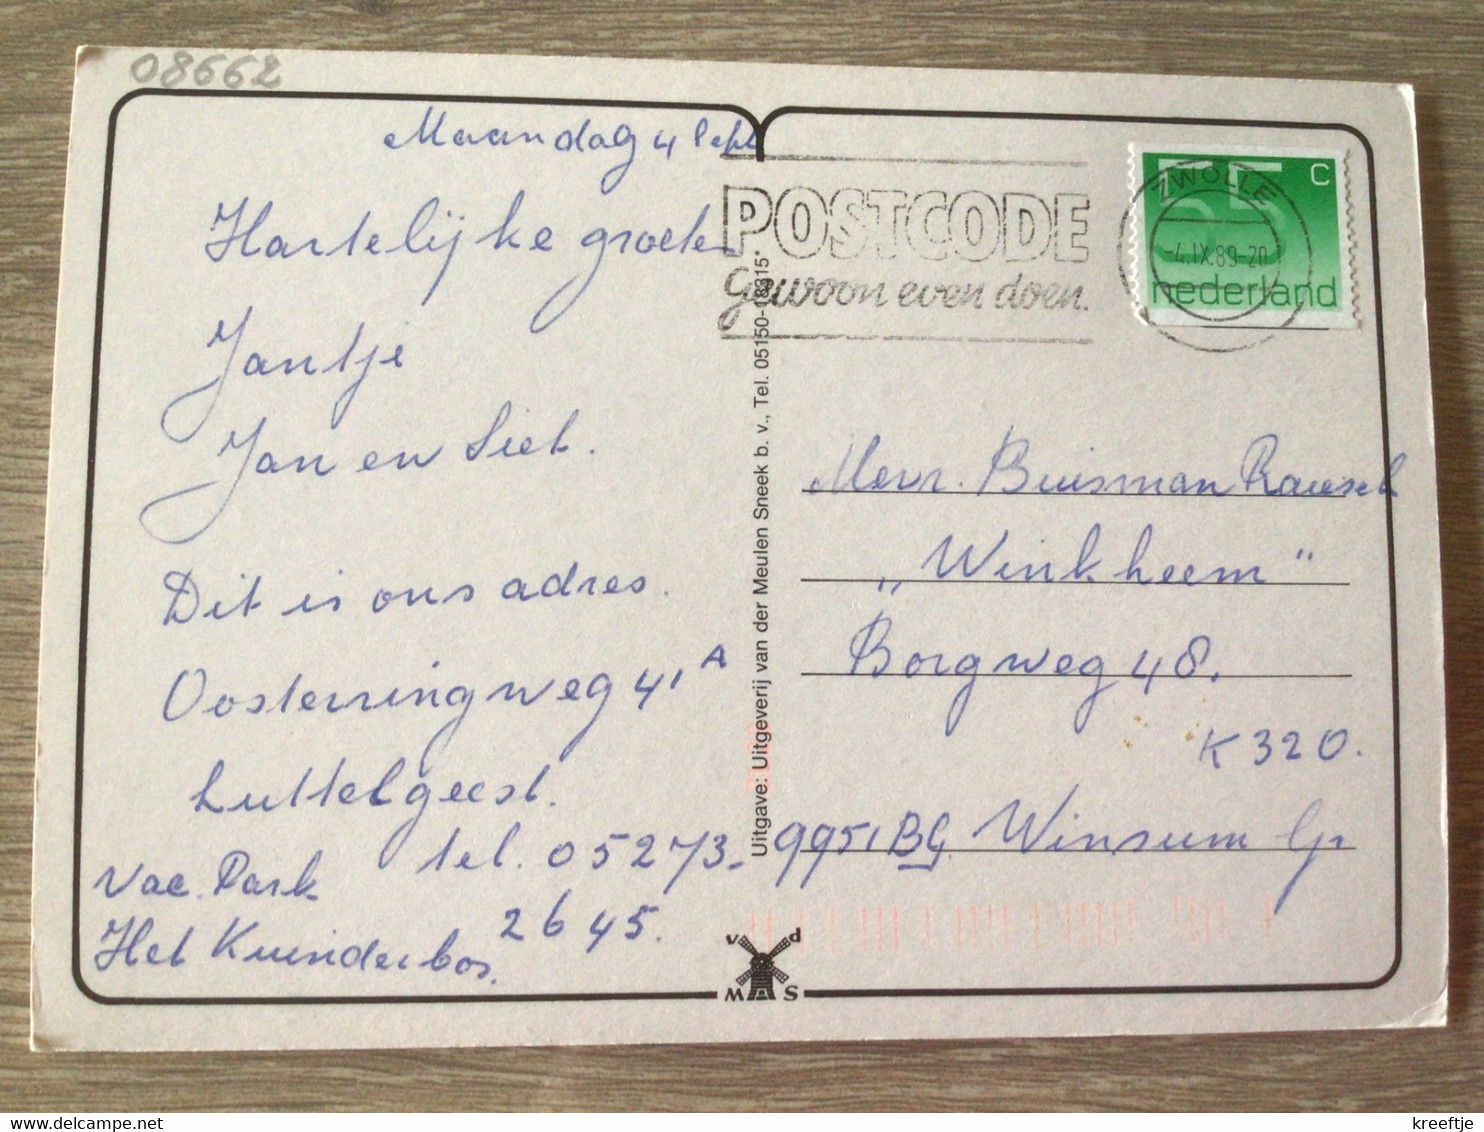 08662
Maandag 4 Sept
Hartelijke groeten
Jantje
Jan en Siet.
Dit is ons adres.
Oosterringweg 41 A
Luttelgeest.
tel. 05273-
2645.
Vac. Park
Het Kuinderbos.
Uitgave: Uitgeverij van der Meulen Sneek b. v., Tel. 05150-18315*
v d
MAS
POSTCODE
Gewoon even doen.
ZWOLLE
-4.IX.89-20
55 C
nederland
Mevr. Buisman
„Winkheem"
Borgweg 48.
K320.
9951BG Winsum Gr
kreeftje